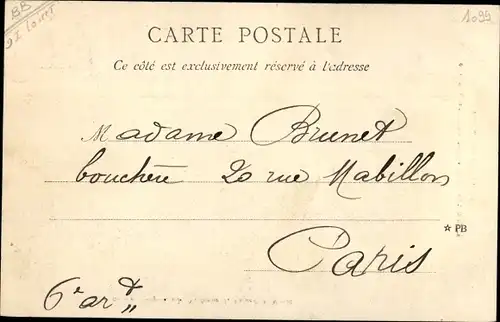 BB
1099
CARTE POSTALE
Ce côté est exclusivement réservé à l'adresse
Madame Brunet
bouchère 20 rue Mabillon
☆ PB
Paris
6e ardt